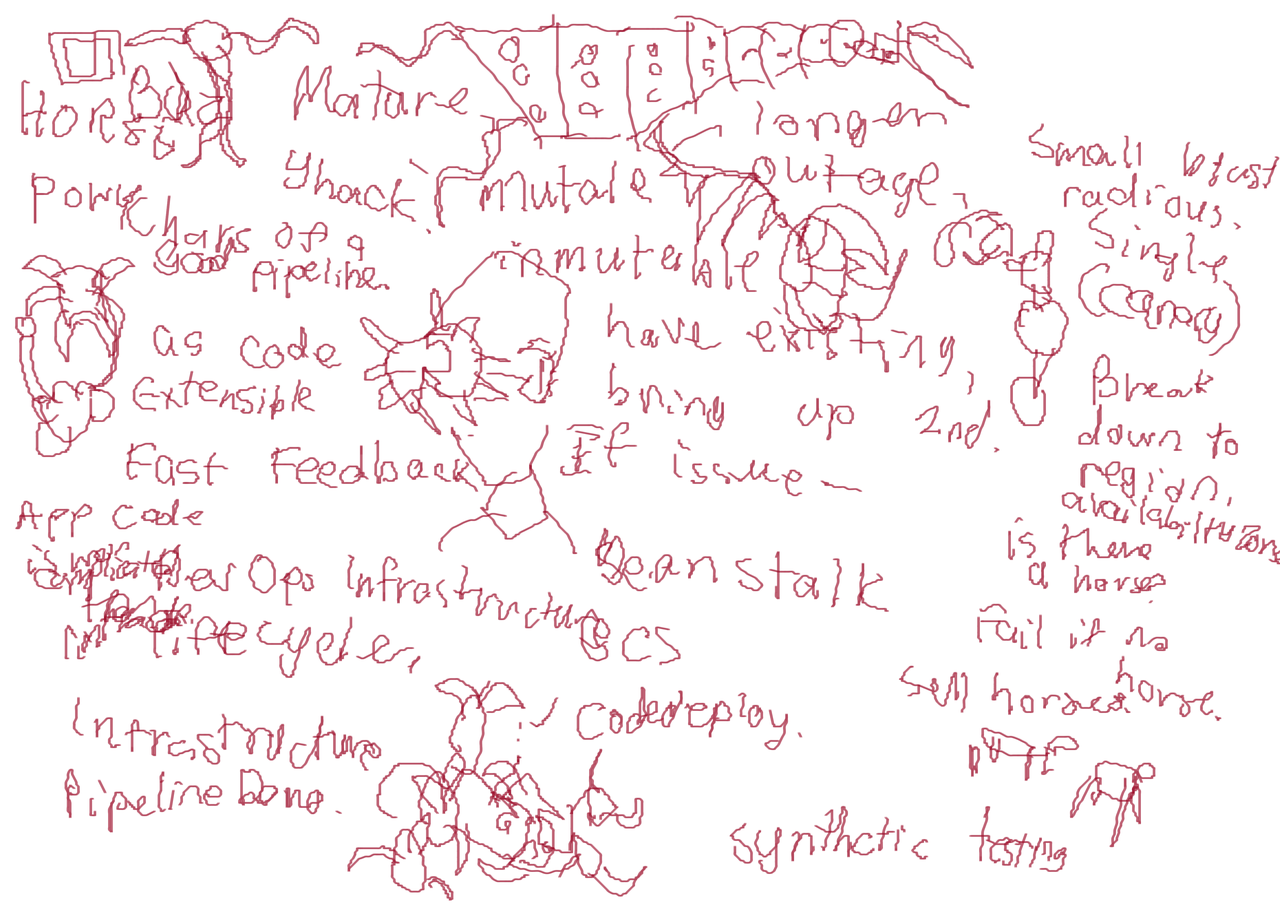 Horse
Bad
Matare
longer
outage,
Small blast
radious.
Single
Canary
Pork
yhack.
mutale
inmuteable
Chars of a
good pipeline.
have existing,
bring up 2nd.
as code
Extensible
Fast Feedback
If issue
Break
down to
region,
availability zone
is there
a horse
Fail if no
horse.
sell horses.
App code
Dev Ops Infrastructure
in lifecycle,
Beanstalk
ECS
Codedeploy.
Infrastructure
Pipeline Done.
synthetic testing